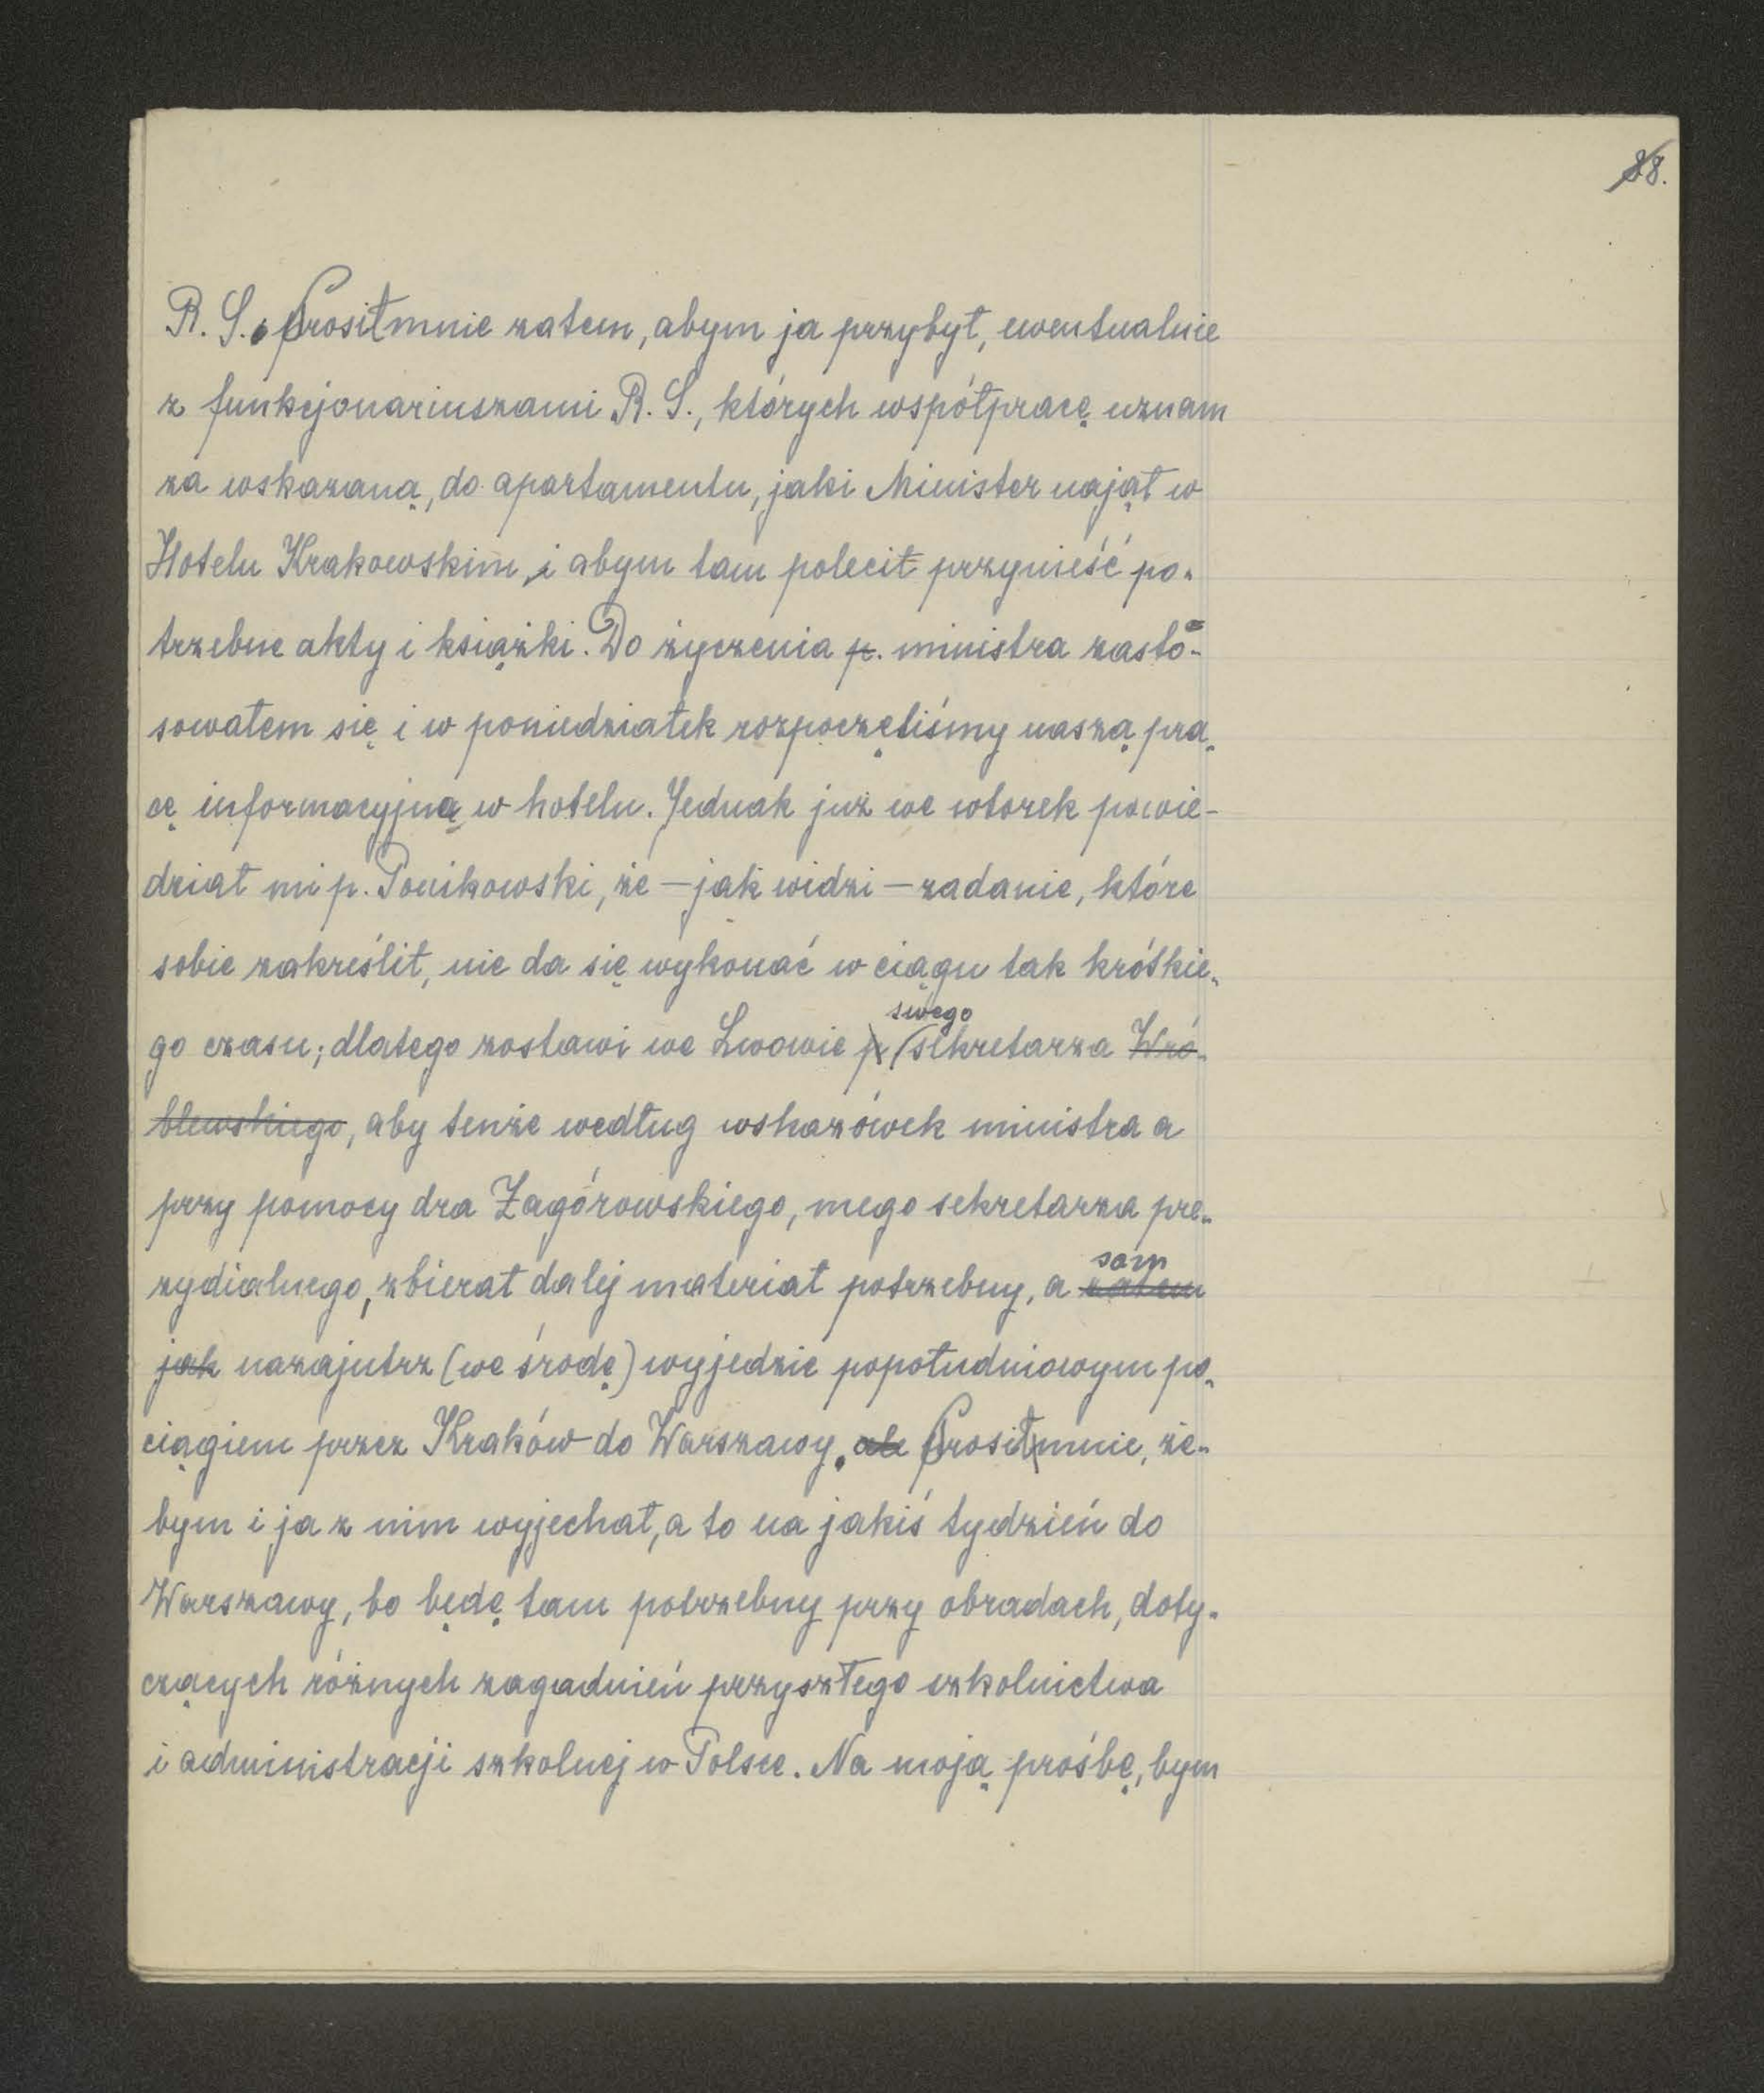 88.
R. S. Prosił mnie zatem, abym ja przybył, ewentualnie
z funkcjonariuszami R. S., których współpracę uznam
za wskazaną, do apartamentu, jaki Minister najął w
Hotelu Krakowskim, i abym tam polecił przynieść po-
trzebne akty i książki. Do życzenia p. ministra zasto-
sowałem się i w poniedziałek rozpoczęliśmy naszą pra-
cę informacyjną w hotelu. Jednak już we wtorek powie-
dział mi p. Ponikowski, że — jak widzi — zadanie, które
sobie zakreślił, nie da się wykonać w ciągu tak krótkie-
swego
go czasu; dlatego zostawi we Lwowie p. sekretarza Wró-
blewskiego, aby tenże według wskazówek ministra a
przy pomocy dra Zagórowskiego, mego sekretarza pre-
sam
zydialnego, zbierał dalej materiał potrzebny, a zatem
jak nazajutrz (we środę) wyjedzie popołudniowym po-
ciągiem przez Kraków do Warszawy. ale Prosił mnie, że-
bym i ja z nim wyjechał, a to na jakiś tydzień do
Warszawy, bo będę tam potrzebny przy obradach, doty-
czących różnych zagadnień przyszłego szkolnictwa
i administracji szkolnej w Polsce. Na moją prośbę, bym